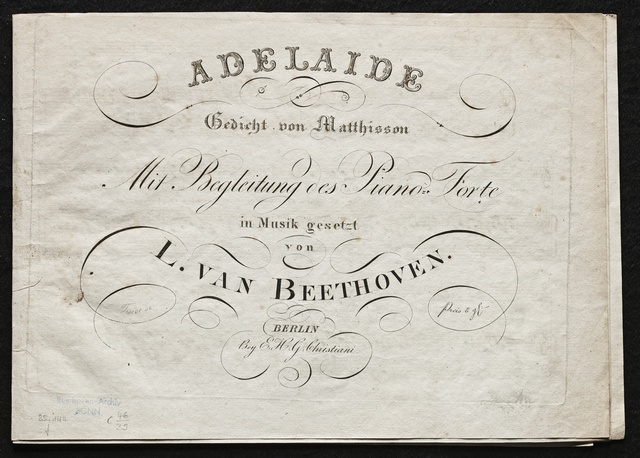 ADELAIDE
Gedicht von Matthisson
Mit Begleitung des Piano-Forte
in Musik gesetzt
von
L. VAN BEETHOVEN.
Preis 8 gr
BERLIN
Bey E. H. G. Christiani
C 46
29